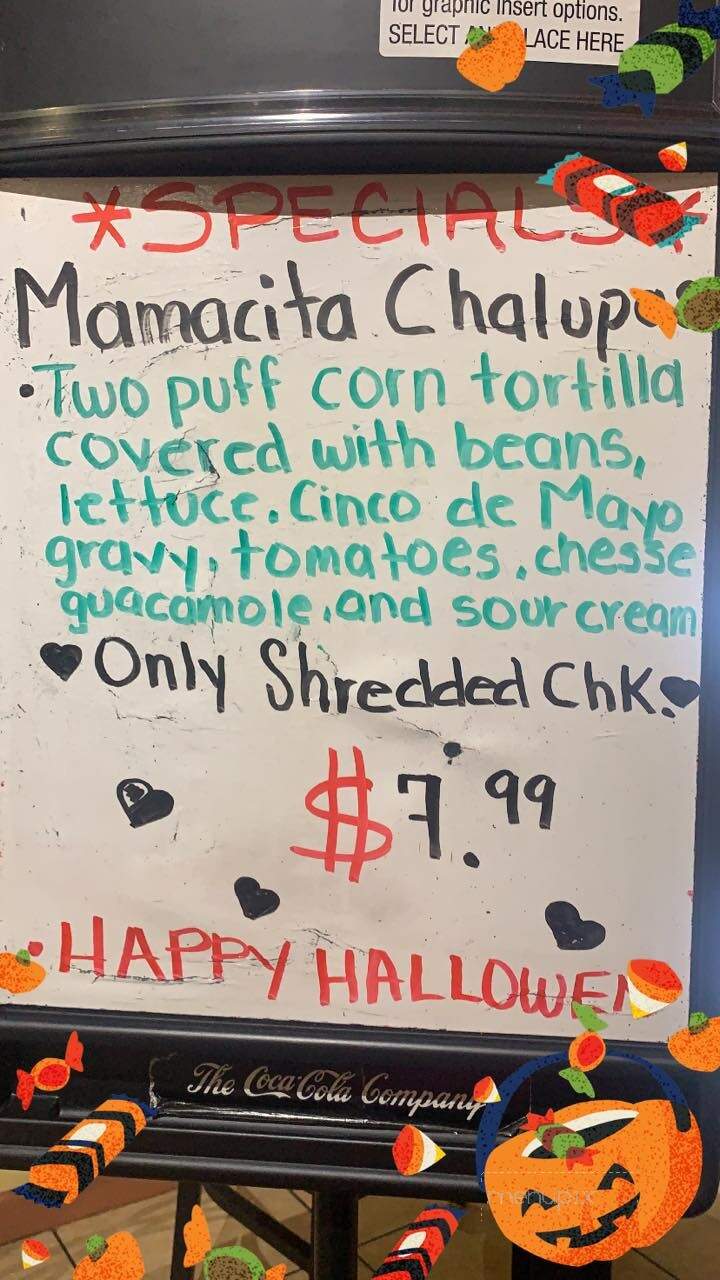 for graphic insert options.
SELECT AND PLACE HERE
*SPECIALS*
Mamacita Chalupas
•Two puff corn tortilla
covered with beans,
lettuce, Cinco de Mayo
gravy, tomatoes, chesse
guacamole, and sour cream
♥Only Shredded ChK.♥
$7.99
•HAPPY HALLOWEN
The Coca-Cola Company
menupix